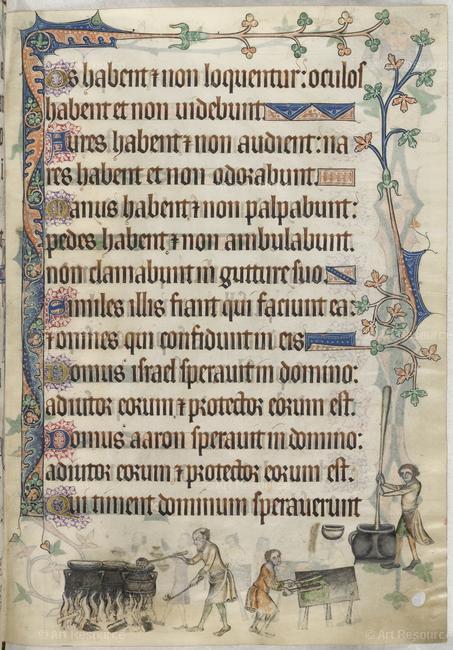 Os habent ⁊ non loquentur: oculos
habent et non uidebunt.
Aures habent ⁊ non audient: na
res habent et non odorabunt.
Manus habent ⁊ non palpabunt:
pedes habent ⁊ non ambulabunt.
non clamabunt in gutture suo.
Similes illis fiant qui faciunt ea:
⁊ omnes qui confidunt in eis
Domus israel sperauit in domino:
adiutor eorum ⁊ protector eorum est.
Domus aaron sperauit in domino:
adiutor eorum ⁊ protector eorum est.
Qui timent dominum sperauerunt
© Art Resource
© Art Resource